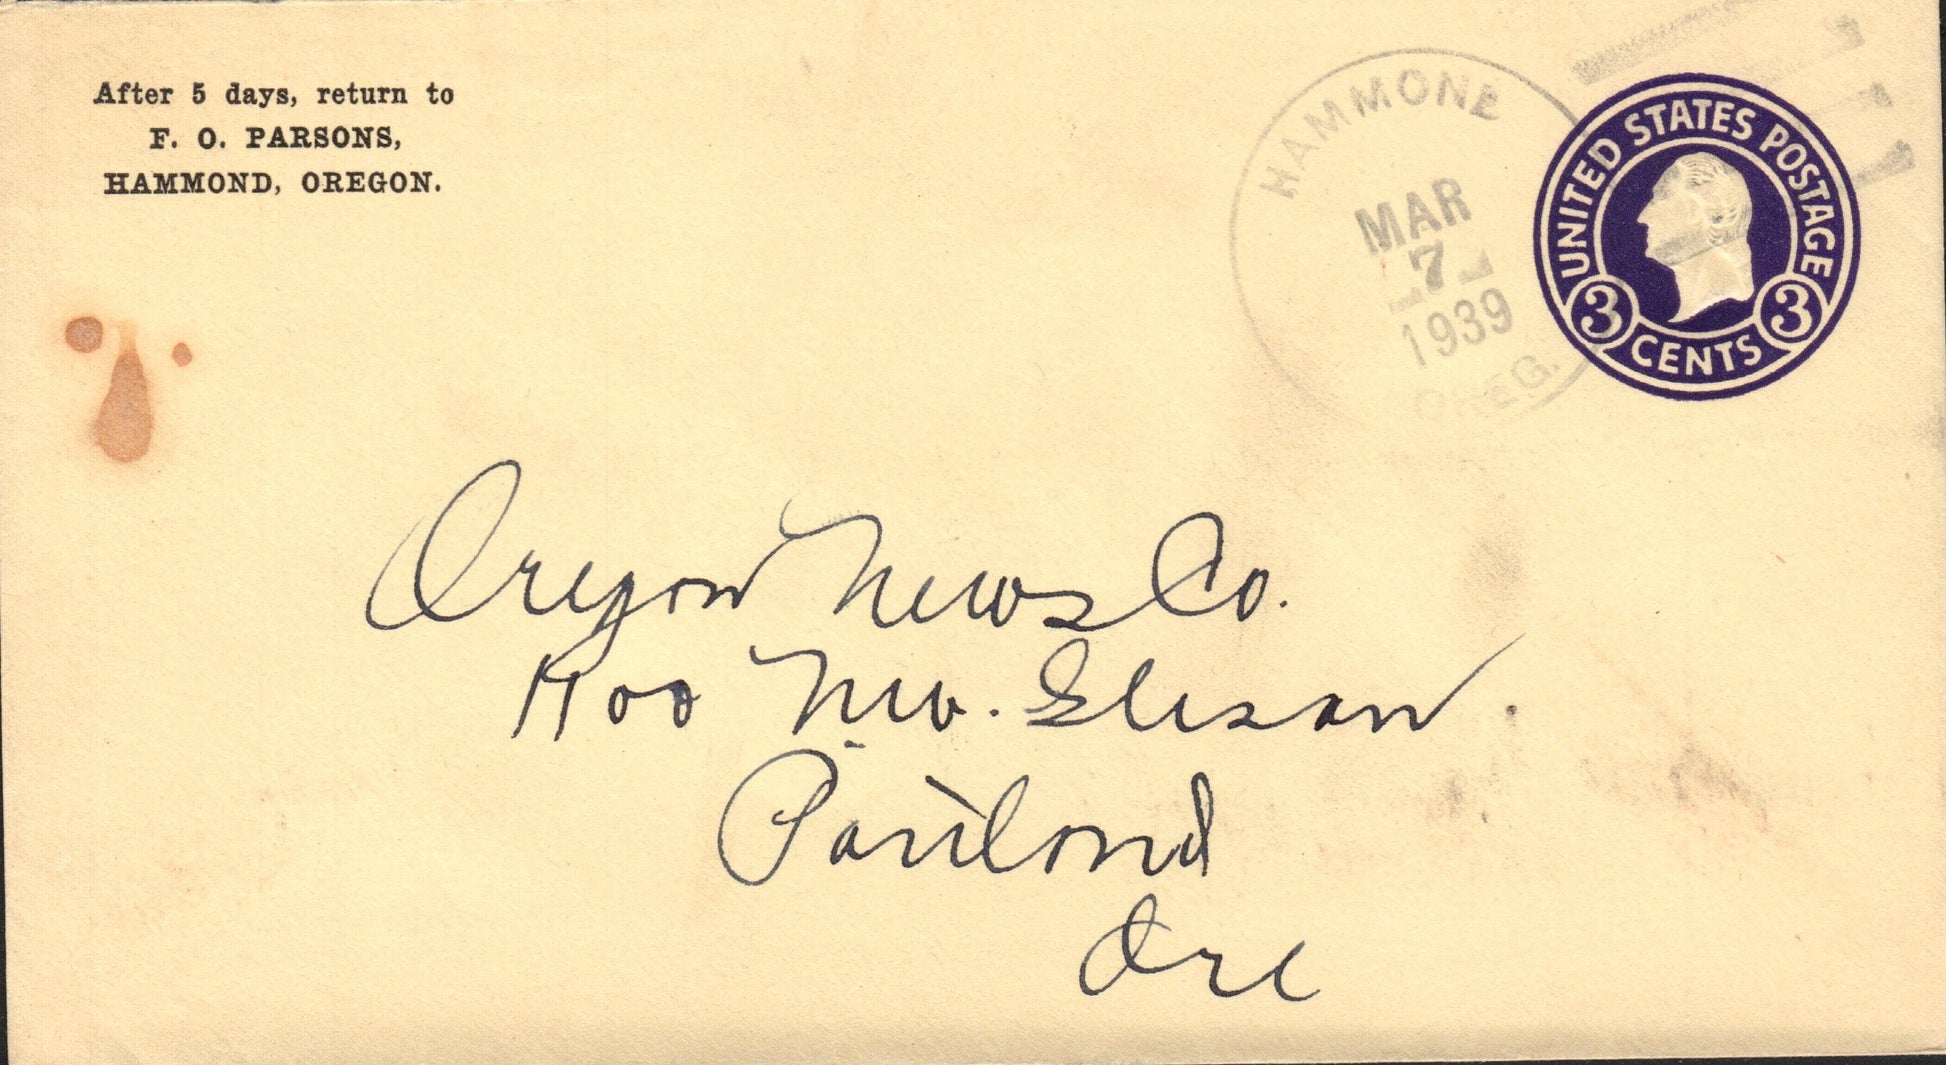 After 5 days, return to
F. O. PARSONS,
HAMMOND, OREGON.
HAMMOND
MAR
7
1939
OREG.
UNITED STATES POSTAGE
3 CENTS 3
Oregon News Co.
1400 NW. Glisan.
Portland
Ore